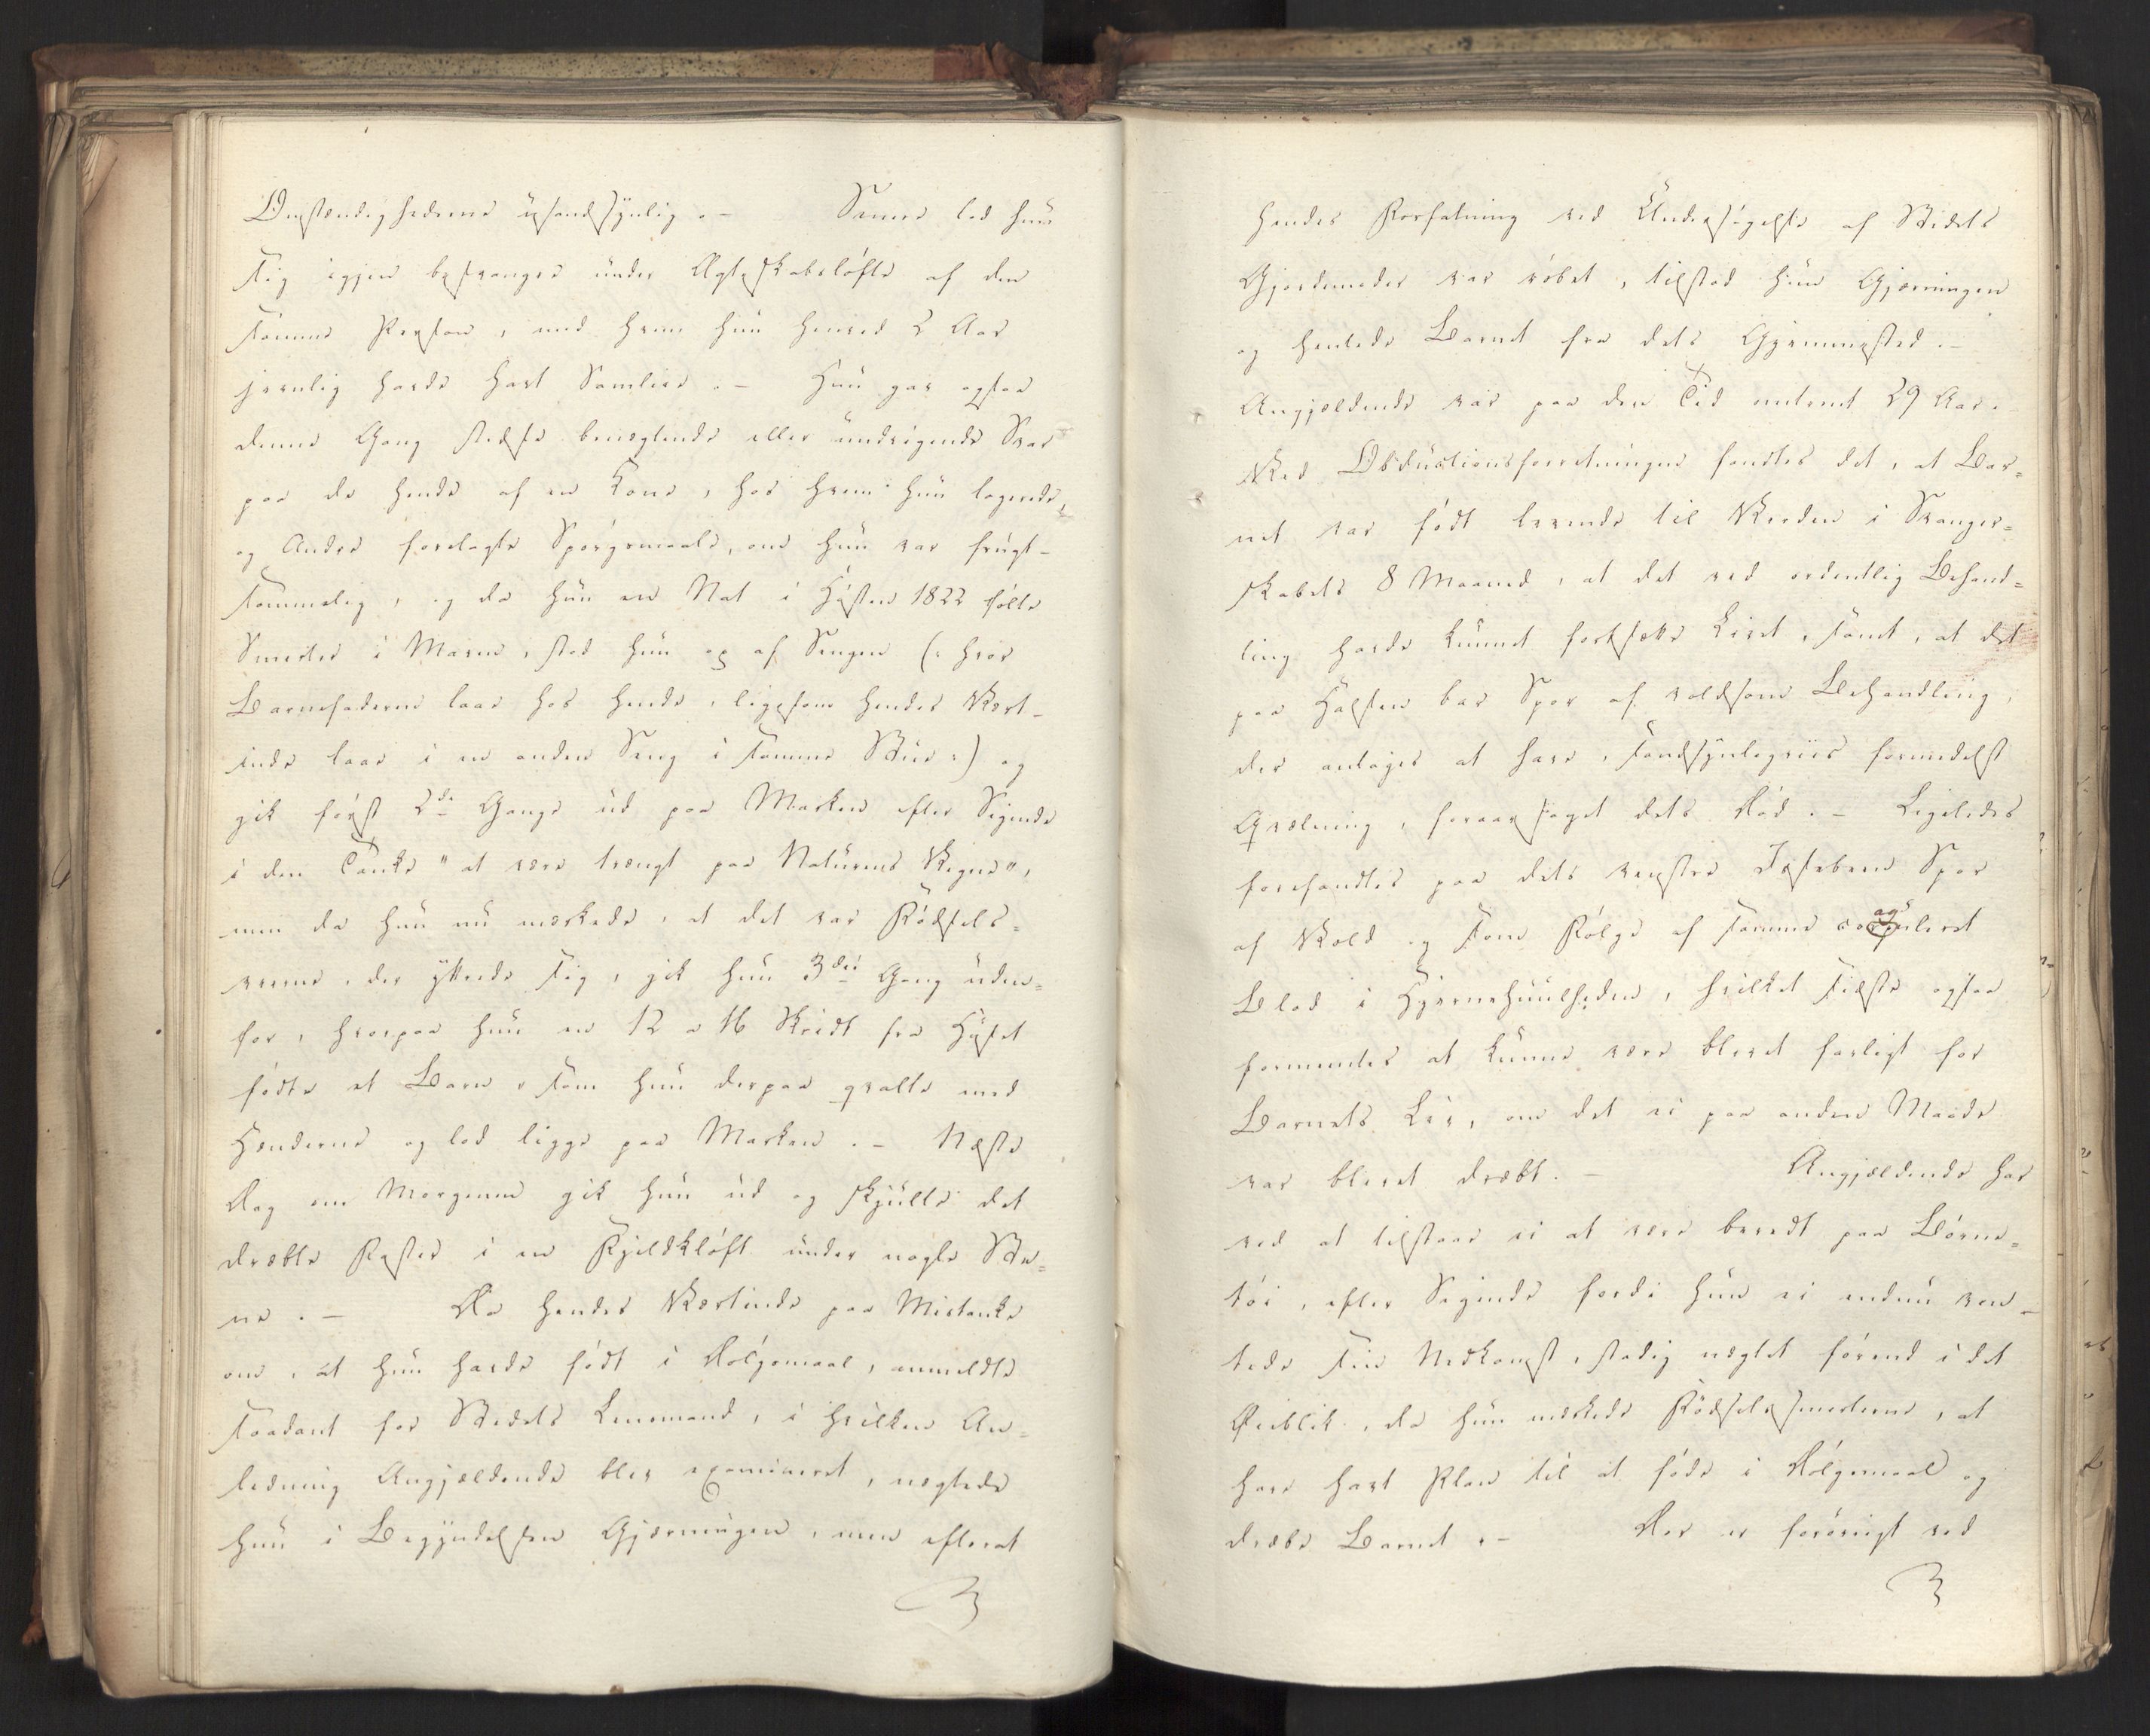 Omstændighederne usandsynlig. – Senere lod hun
sig igjen besvangre under Ægteskabsløfte af den
samme Person, med hvem hun henved 2 Aar
jevnlig havde havt Samleie. – Hun gav ogsaa
denne Gang stedse benægtende eller undvigende Svar
paa de hende af en Kone, hos hvem hun logerede,
og Andre forelagte Spørgsmaale, om hun var frugt-
sommelig, og da hun en Nat i Høsten 1822 følte
Smerter i Maven, stod hun op af Sengen (: hvor
Barnefaderen laae hos hende, ligesom hendes Vært-
inde laae i en anden Seng i samme Stue :) og
gik først 2de Gange ud paa Marken efter Sigende
i den Tanke "at være trængt paa Naturens Vegne",
men da hun nu mærkede, at det var Fødsels-
veerne, der yttrede sig, gik hun 3die Gang uden-
for, hvorpaa hun en 12 a 16 Skridt fra Huset
fødte et Barn, som hun derpaa qvalte med
Hænderne og lod ligge paa Marken. – Næste
Dag om Morgenen gik hun ud og skjulte det
dræbte Foster i en Fjeldkløft under nogle Stee-
ne. – Da hendes Værtinde paa Mistanke
om, at hun havde født i Dølgsmaal, anmeldte
saadant for Stedets Lensmand, i hvilken An-
ledning Angjældende blev examineret, nægtede
hun i Begyndelsen Gjerningen, men efterat
hendes Forfatning ved Undersøgelse af Stedets
Gjordemoder var røbet, tilstod hun Gjerningen
og hentede Barnet fra dets Gjemmested. –
Angjældende var paa den Tid omtrent 29 Aar.
Ved Obductionsforretningen fandtes det, at Bar-
net var født levende til Verden i Svanger-
skabets 8 Maaned, at det ved ordentlig Behand-
ling havde kunnet fortsætte Livet, samt, at det
paa Halsen bar Spor af voldsom Behandling,
der antoges at have, sandsynligviis formedelst
Qvælning, foraarsaget dets Død. – Ligeledes
forefandtes paa dets venstre Isseben Spor
af Vold og som Følge af samme coaguleret
Blod i Hjernehuulheden, hvilket sidste ogsaa
formentes at kunne være blevet farligt for
Barnets Liv, om det ei paa anden Maade
var blevet dræbt. – Angjældende har
ved at tilstaae ei at være beredt paa Børne-
tøi, efter Sigende fordi hun ei endnu ven-
tede sin Nedkomst, stadig nægtet førend i det
Øieblik, da hun mærkede Fødselssmerterne, at
have havt Plan til at føde i Dølgsmaal og
dræbe Barnet. – Der er forøvrigt ved